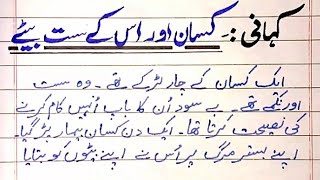 کہانی:- کسان اور اس کے سست بیٹے
ایک کسان کے چار لڑکے تھے۔ وہ سست
اور نکمے تھے۔ بے سود اُن کا باپ انہیں کام کرنے
کی نصیحت کرتا تھا۔ ایک دن کسان بیمار پڑ گیا۔
اپنے بستر مرگ پر اُس نے اپنے بیٹوں کو بتایا